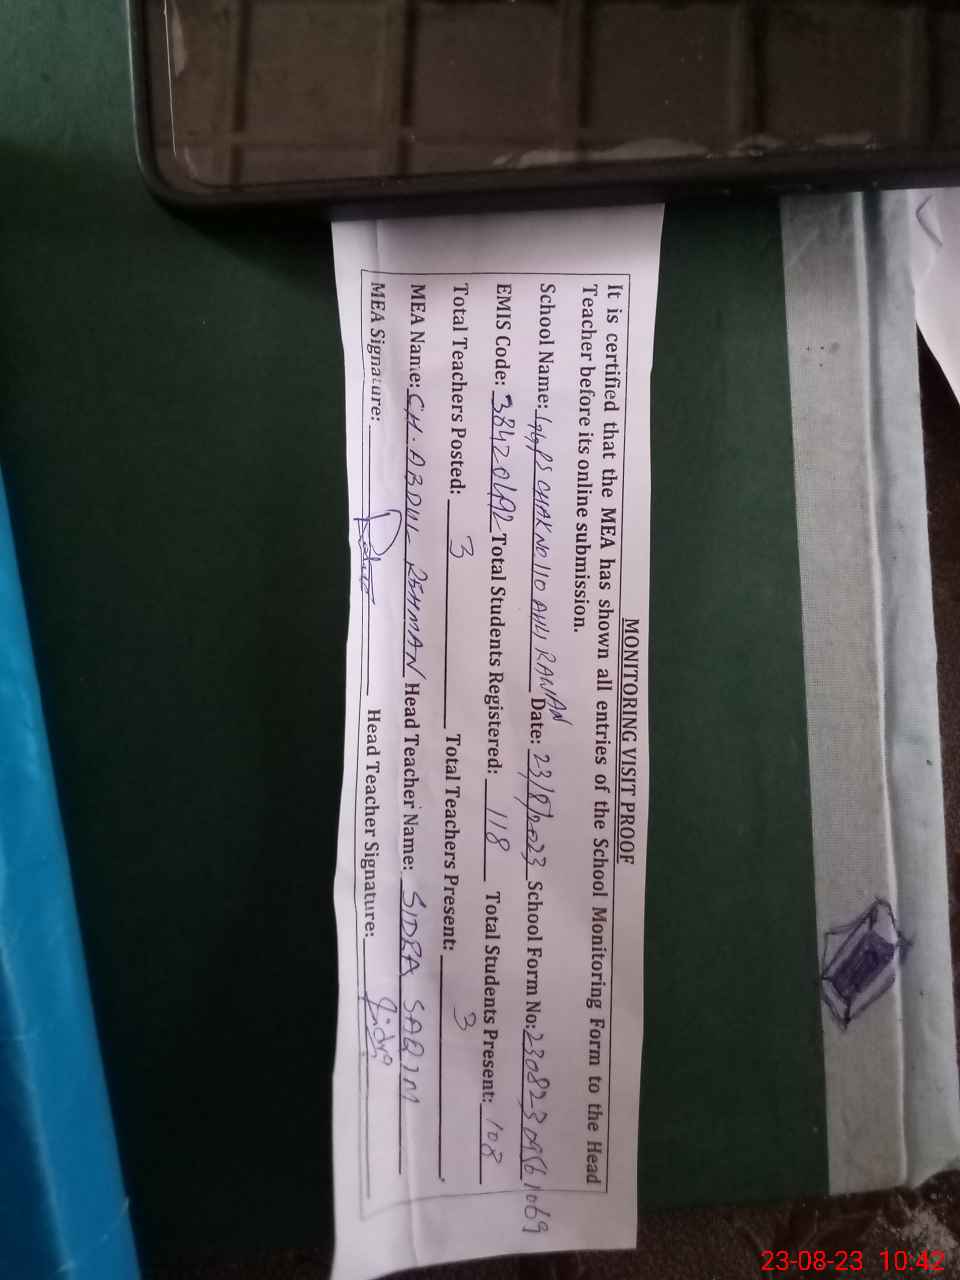 MONITORING VISIT PROOF
It is certified that the MEA has shown all entries of the School Monitoring Form to the Head
Teacher before its online submission.
School Name: CHAK NO 110 Date: 23/8/2023 School Form No:
EMIS Code: 38420492 Total Students Registered: 118 Total Students Present: 108
Total Teachers Posted: 3 Total Teachers Present: 3
MEA Name: CH. ABDUL REHMAN Head Teacher Name: SIDRA SAQIM
MEA Signature: Head Teacher Signature:
23-08-23 10:42